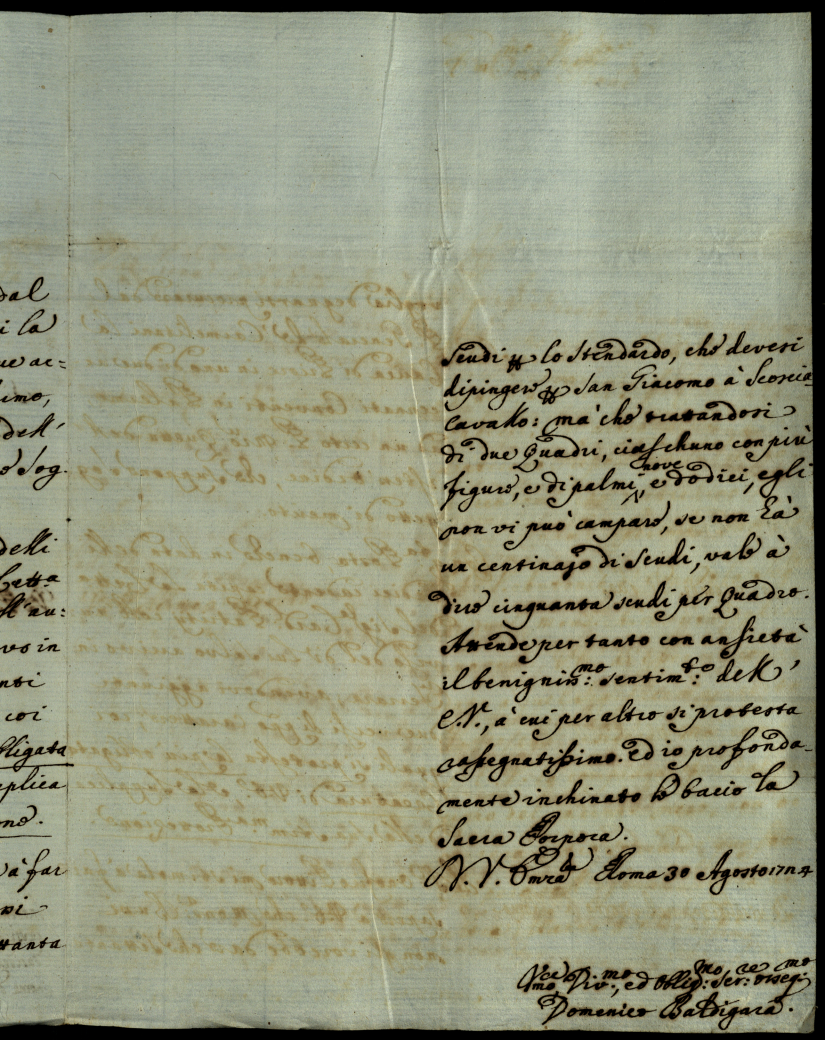 dal
i la
ue ac=
simo,
dell'
e sog.
delli
Cetta
ll'au:
vo in
nti
coi
bligata
pplica
one.
à far
vi
ttanta
Scudi p lo Stendardo, che devesi
dipingere p San Giacomo à Scoscia-
cavallo: ma' che trattandosi
di due Quadri, ciaschuno con più
figure, e di palmi nove, e dodici, egli
non vi può campare, se non hà
un centinajo di Scudi, vale à
dire cinquanta scudi per Quadro.
Attende per tanto con ansietà
il benignis.mo: sentim.to: dell'
E.V., à cui per altro si protesta
rassegnatissimo. ed io profonda-
mente inchinato le bacio la
Sacra Porpora.
D. V. Emza Roma 30 Agosto 1724
Div.mo, ed Obblig.mo: Ser.re: Osseq.mo
Domenico Baldigara.